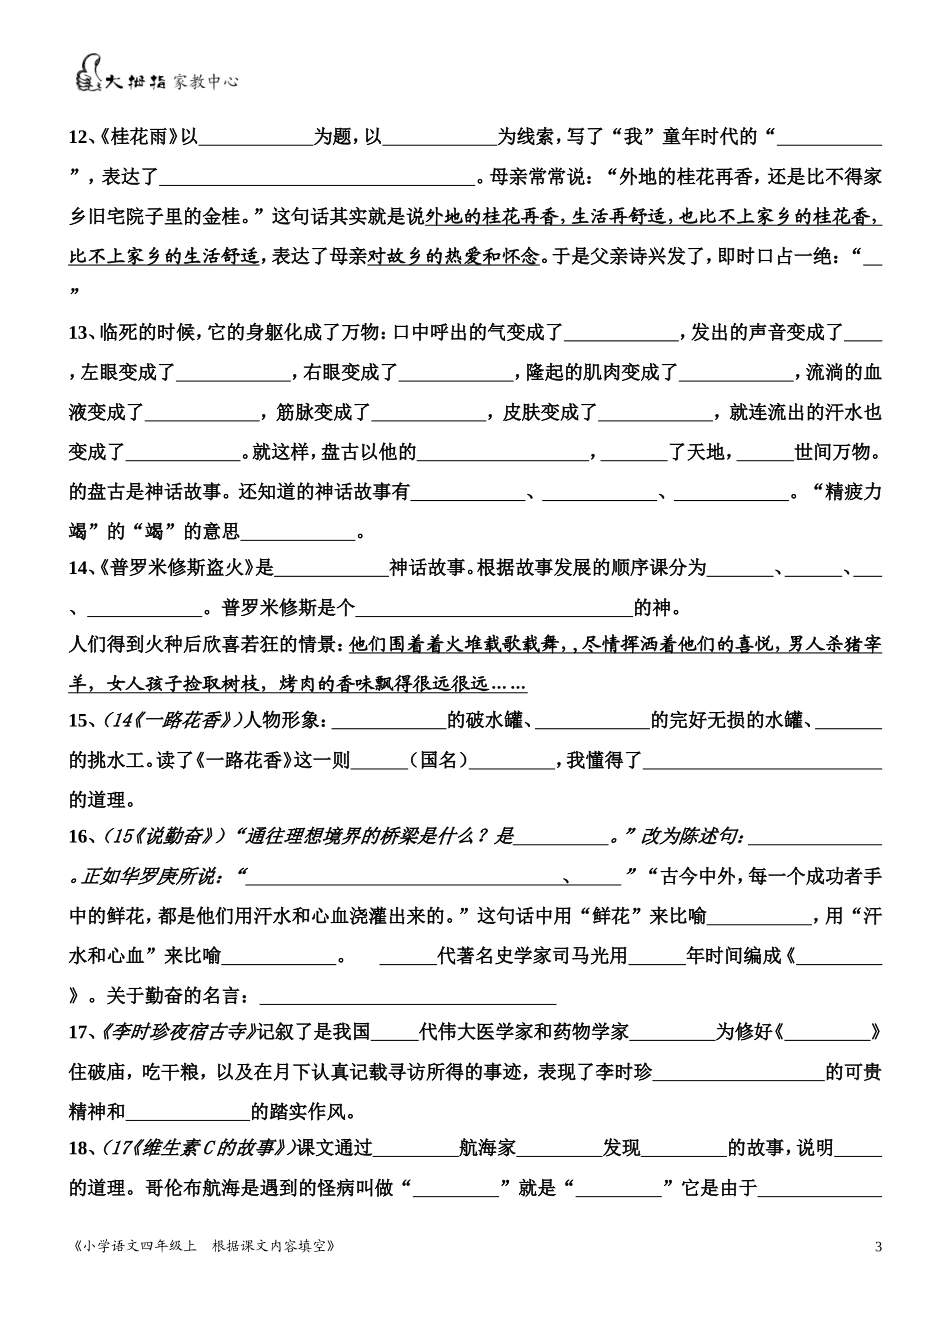 大拇指家教中心
12、《桂花雨》以____________为题,以____________为线索,写了“我”童年时代的“___________
”,表达了_________________________________。母亲常常说:“外地的桂花再香,还是比不得家
乡旧宅院子里的金桂。”这句话其实就是说外地的桂花再香,生活再舒适,也比不上家乡的桂花香,
比不上家乡的生活舒适,表达了母亲对故乡的热爱和怀念。于是父亲诗兴发了,即时口占一绝:“__
”
13、临死的时候,它的身躯化成了万物:口中呼出的气变成了____________,发出的声音变成了____
,左眼变成了____________,右眼变成了____________,隆起的肌肉变成了____________,流淌的血
液变成了____________,筋脉变成了____________,皮肤变成了____________,就连流出的汗水也
变成了____________。就这样,盘古以他的__________________,_______了天地,______世间万物。
的盘古是神话故事。还知道的神话故事有____________、____________、____________。“精疲力
竭”的“竭”的意思____________。
14、《普罗米修斯盗火》是____________神话故事。根据故事发展的顺序课分为_______、______、___
、____________。普罗米修斯是个_____________________________的神。
人们得到火种后欣喜若狂的情景:他们围着着火堆载歌载舞,,尽情挥洒着他们的喜悦,男人杀猪宰
羊,女人孩子捡取树枝,烤肉的香味飘得很远很远……
15、(14《一路花香》)人物形象:____________的破水罐、____________的完好无损的水罐、_______
的挑水工。读了《一路花香》这一则______(国名)_________,我懂得了_________________________
的道理。
16、(15《说勤奋》)“通往理想境界的桥梁是什么?是__________。”改为陈述句:______________
。正如华罗庚所说:“_________________________________、_____”“古今中外,每一个成功者手
中的鲜花,都是他们用汗水和心血浇灌出来的。”这句话中用“鲜花”来比喻___________,用“汗
水和心血”来比喻____________。 ______代著名史学家司马光用______年时间编成《_________
》。关于勤奋的名言:_______________________________
17、《李时珍夜宿古寺》记叙了是我国_____代伟大医学家和药物学家_________为修好《_________》
住破庙,吃干粮,以及在月下认真记载寻访所得的事迹,表现了李时珍__________________的可贵
精神和_____________的踏实作风。
18、(17《维生素C的故事》)课文通过_________航海家_________发现_________的故事,说明_____
的道理。哥伦布航海是遇到的怪病叫做“_________”就是“_________”它是由于_____________
《小学语文四年级上 根据课文内容填空》 3